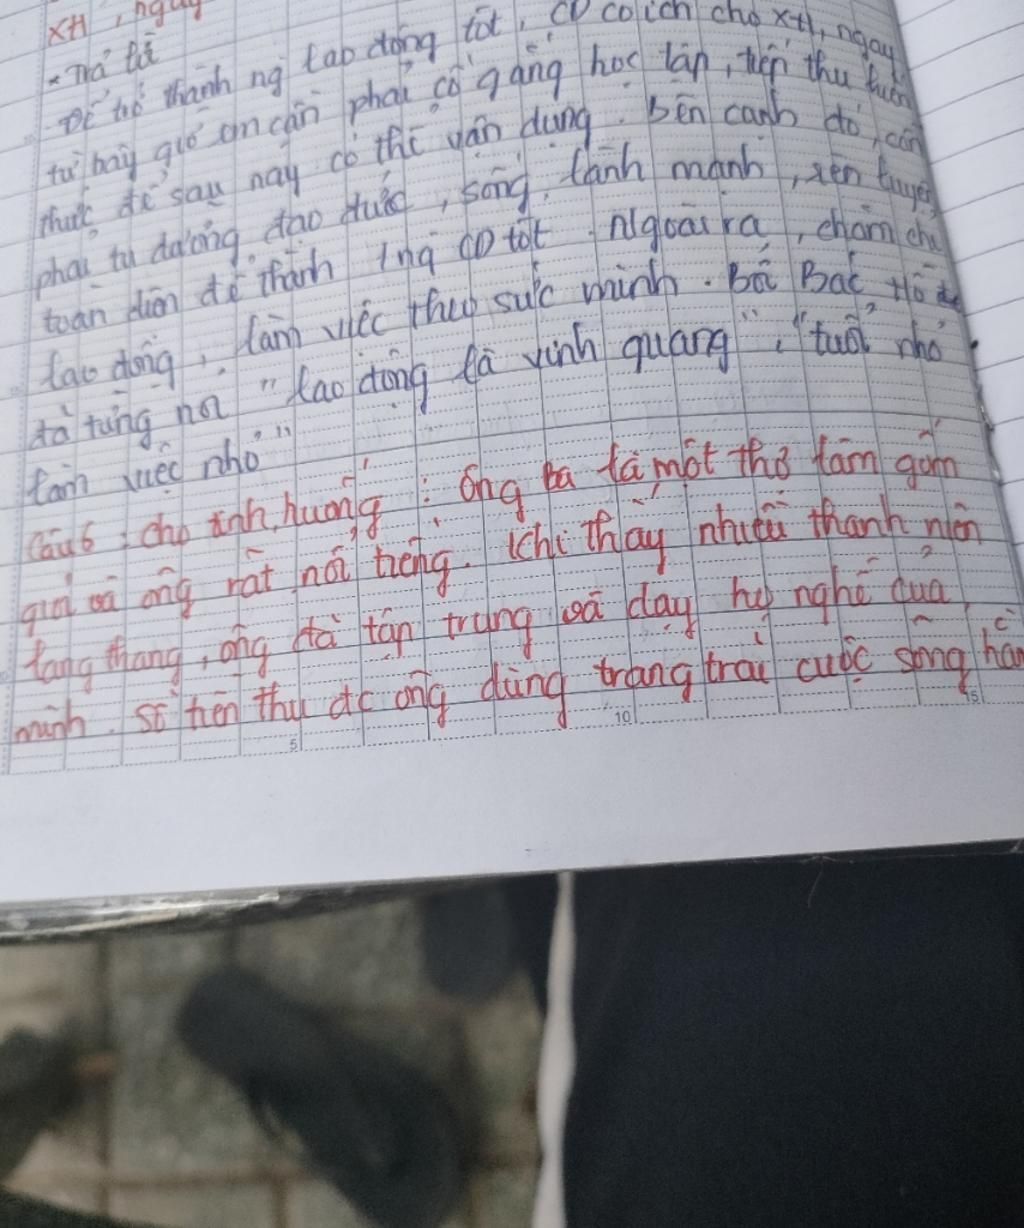 XH, ngay
* Trả lời
- Để trở thành ng lao động tốt, CD có ích cho XH, ngay
từ bây giờ em cần phải cố gắng học tập, tiếp thu kiến
thức để sau này có thể vận dụng. Bên cạnh đó, cần
phải tu dưỡng đạo đức, sống lành mạnh, rèn luyện
toàn diện để thành 1 ng CD tốt. Ngoài ra, chăm chỉ
lao động, làm việc theo sức mình. Bởi Bác Hồ
đã từng nói "lao động là vinh quang", "tuổi nhỏ
làm việc nhỏ"
Câu 6: cho tình huống: ông ba là một thợ làm gốm
giỏi và ông rất nổi tiếng. Khi thấy nhiều thanh niên
lang thang, ông đã tập trung và dạy họ nghề của
mình. Số tiền thu đc ông dùng trang trải cuộc sống
5 10 15